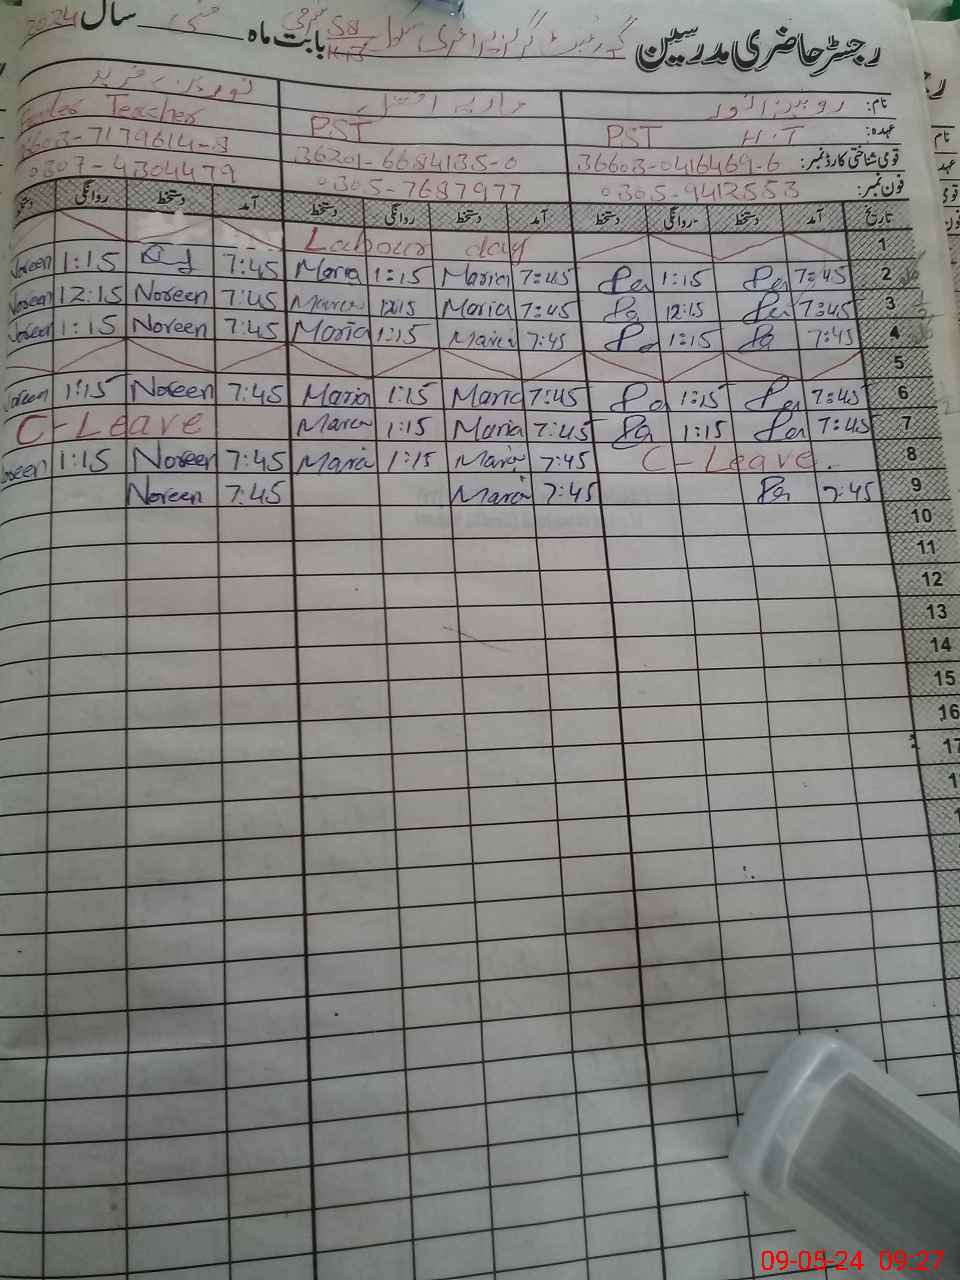 رجسٹر حاضری مدرسین گورنمنٹ گرلز پرائمری سکول 58 بابت ماہ مئی سال 2024
نام: روبینہ انور
عہدہ: PST H.T PST Teacher
قومی شناختی کارڈ نمبر: 36603-0416469-6 36201-6684135-0 3603-7179614-8
فون نمبر: 0305-9412553 0305-7687977 0307-4304479
تاریخ آمد دستخط روانگی دستخط آمد دستخط روانگی دستخط آمد دستخط روانگی
1 Labour day
2 7:45 1:15 7:45 Maria 1:15 Maria 7:45 1:15 Noreen
3 7:45 12:15 7:45 Maria 12:15 Maria 7:45 Noreen 12:15 Noreen
4 7:45 1:15 7:45 Maria 1:15 Maria 7:45 Noreen 1:15 Noreen
5
6 7:45 1:15 7:45 Maria 1:15 Maria 7:45 Noreen 1:15 Noreen
7 7:45 1:15 7:45 Maria 1:15 Maria C-Leave
8 C-Leave. 7:45 Maria 1:15 Maria 7:45 Noreen 1:15 Noreen
9 7:45 7:45 Maria 7:45 Noreen
10
11
12
13
14
15
16
17
09-05-24 09:27